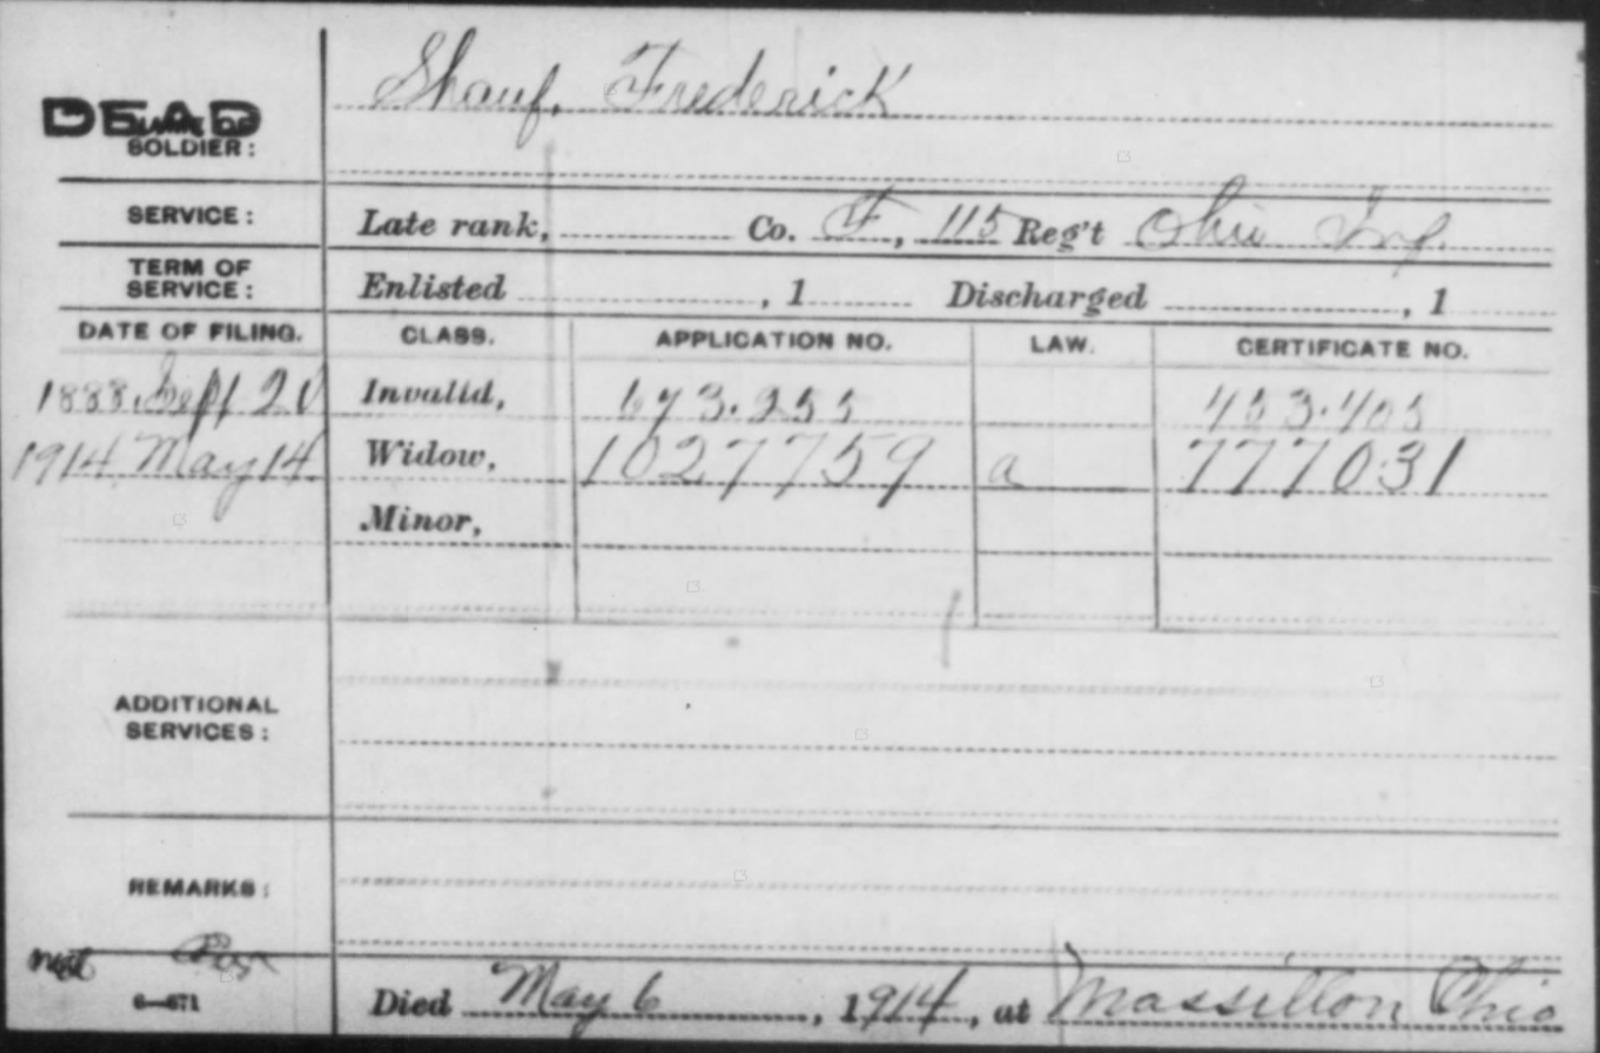 Shauf, Frederick
DEAD
NAME OF
SOLDIER:
SERVICE: Late rank, Co. F, 115 Reg't Ohio Inf.
TERM OF
SERVICE: Enlisted , 1 Discharged , 1
DATE OF FILING. CLASS. APPLICATION NO. LAW. CERTIFICATE NO.
1888. Sept 20 Invalid, 673.255 453.405
1914 May 14 Widow, 1027759 a 777031
Minor,
ADDITIONAL
SERVICES:
REMARKS:
6—671
Died May 6, 1914, at Massillon Ohio